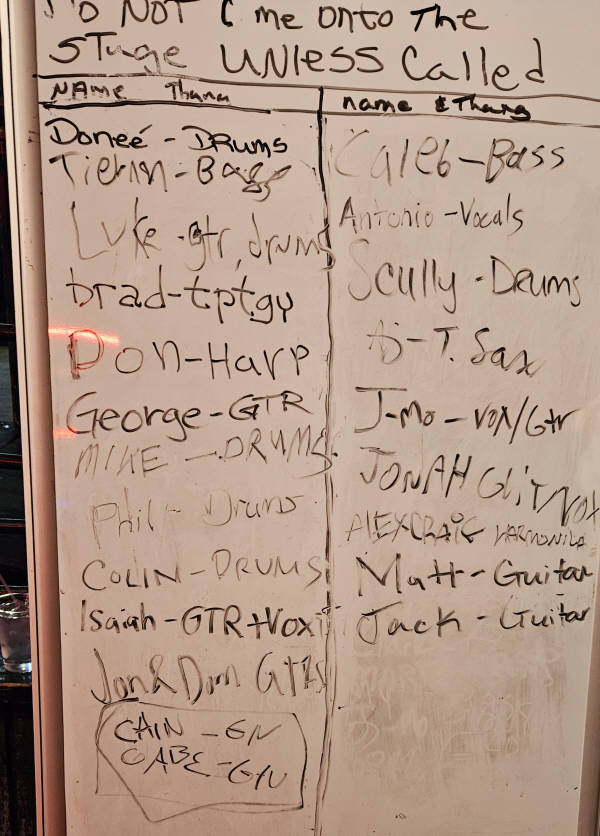 DO NOT Come onto The
STage UNless Called
NAMe Thang
Doneé - DRums
Tiernan - Bass
Luke - gtr, drums
brad - t.ptgy
Don - Harp
George - GTR
MIKE - DRUMS
Phil - Drums
COLIN - DRUMS
Isaiah - GTR + Vox
Jon & Dom
CAIN
GABE
name & Thang
Caleb - Bass
Antonio - Vocals
Scully - Drums
T. Sax
J-Mo - vox/Gtr
JONAH Vox
ALEX CRAIG HARMONICA
Matt - Guitar
Jack - Guitar